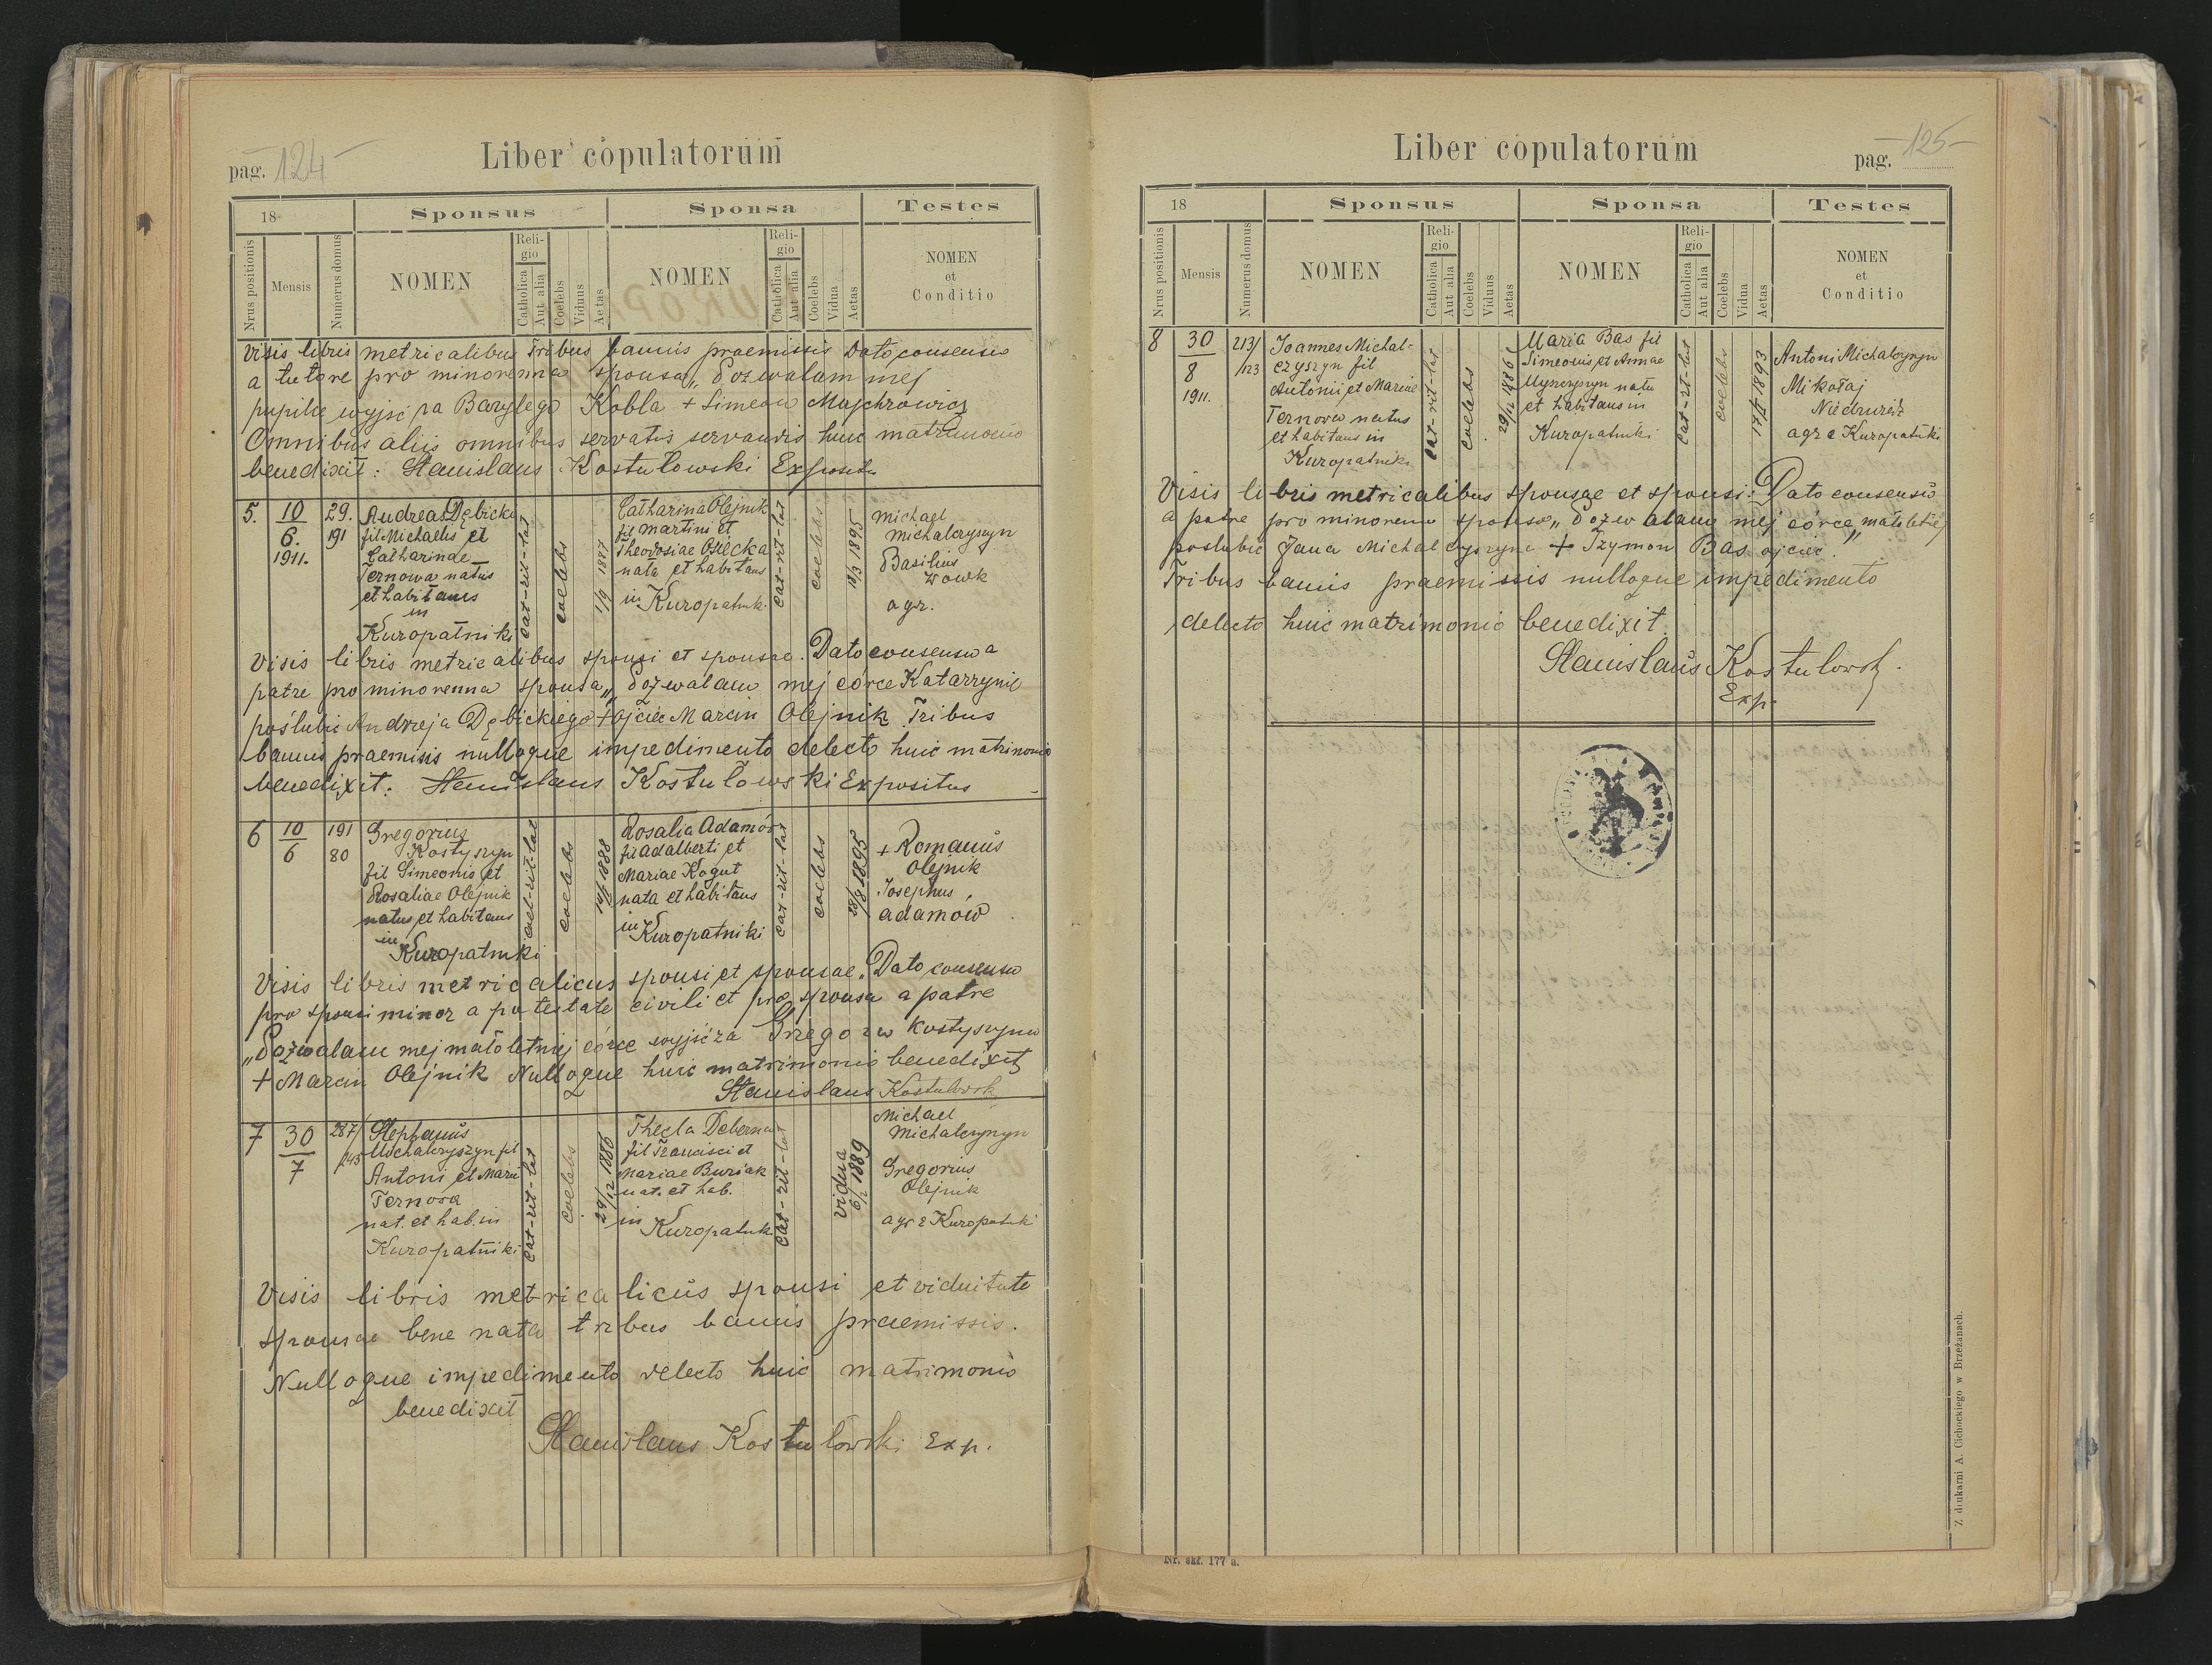 pag. 124
Liber copulatorum
18
Sponsus
Sponsa
Testes
Nrus positionis
Mensis
Numerus domus
NOMEN
Religio
Catholica
Aut alia
Coelebs
Viduus
Aetas
NOMEN
Religio
Catholica
Aut alia
Coelebs
Vidua
Aetas
NOMEN
et
Conditio
Visis libris metricalibus Tribus bannis praemissis Dato consensu
a tutore pro minorenna sponsa „Pozwalam mej
pupilce wyjść za Bazylego Kobla + Simeon Majchrowicz
Omnibus aliis omnibus servatis servandis huic matrimonio
benedixit: Stanislaus Kostulowski Expositus
5.
10
6.
1911.
29.
191
Andreas Dębicki
fil Michaelis et
Catharinae
Ternowa natus
et habitans
in
Kuropatniki
cat-rit-lat
coelebs
1/9 1887
Catharina Olejnik
fil Martini et
Theodosiae Osiecka
nata et habitans
in Kuropatnik.
cat-rit-lat
coelebs
10/3 1895
Michael
Michalczyszyn
Basilius
Wowk
agr.
Visis libris metricalibus sponsi et sponsae. Dato consensu a
patre pro minorenna sponsa „Pozwalam mej córce Katarzynie
poślubić Andrzeja Dębickiego + Ojciec Marcin Olejnik Tribus
bannis praemisis nulloque impedimento delecto huic matrimonio
benedixit: Stanislaus Kostulowski Expositus
6
10
6
191
80
Gregorius
Kostyszyn
fil Simeonis et
Rosaliae Olejnik
natus et habitans
in
Kuropatniki
cat-rit-lat
coelebs
1888
Rosalia Adamów
fil Adalberti et
Mariae Kogut
nata et habitans
in Kuropatniki
cat-rit-lat
coelebs
28/8 1895
+ Romanus
Olejnik
Josephus
Adamów
Visis libris metricalicus sponsi et sponsae. Dato consensu
pro sponsi minor a potestate civili et pro sponsa a patre
„Pozwalam mej małoletniej córce wyjść za Grzegorza Kostyszyna
+ Marcin Olejnik Nulloque huic matrimonio benedixit
Stanislaus Kostulowsk
7
30
7
287/
143
Stephanus
Michalczyszyn fil
Antoni et Marii
Ternova
nat. et hab. in
Kuropatniki
cat-rit-lat
coelebs
29/12 1886
Thecla Deberna
fil Francisci et
Mariae Buriak
nat. et hab.
in
Kuropatnik.
cat-rit-lat
vidua
6/12 1889
Michael
Michalczyszyn
Gregorius
Olejnik
agr e Kuropatnik
Visis libris metricalicus sponsi et viduitate
sponsae bene nata tribus bannis praemissis.
Nulloque impedimento delecto huic matrimonio
benedixit
Stanislaus Kostulowski Exp.
Liber copulatorum
pag. 125
18
Sponsus
Sponsa
Testes
Nrus positionis
Mensis
Numerus domus
NOMEN
Religio
Catholica
Aut alia
Coelebs
Viduus
Aetas
NOMEN
Religio
Catholica
Aut alia
Coelebs
Vidua
Aetas
NOMEN
et
Conditio
8
30
8
1911.
213/
123
Joannes Michal-
czyszyn fil
Antonii et Mariae
Ternova natus
et habitans in
Kuropatniki
cat-rit-lat
coelebs
29/12 1886
Maria Bas fil
Simeonis et Annae
Myszczyszyn nata
et habitans in
Kuropatniki
cat-rit-lat
coelebs
17/4 1893
Antoni Michalczyszyn
Mikołaj
Niedzwiedź
agr e Kuropatniki
Visis libris metricalibus sponsae et sponsi. Dato consensu
a patre pro minorenn sponsa „Pozwalam mej córce małoletniej
poślubić Jana Michalczyszyna + Szymon Bas ojciec."
Tribus bannis praemissis nulloque impedimento
delecto huic matrimonio benedixit.
Stanislaus Kostulowsk.
Exp.
Z drukarni A. Cichockiego w Brzeżanach.
Nr. skł. 177 a.